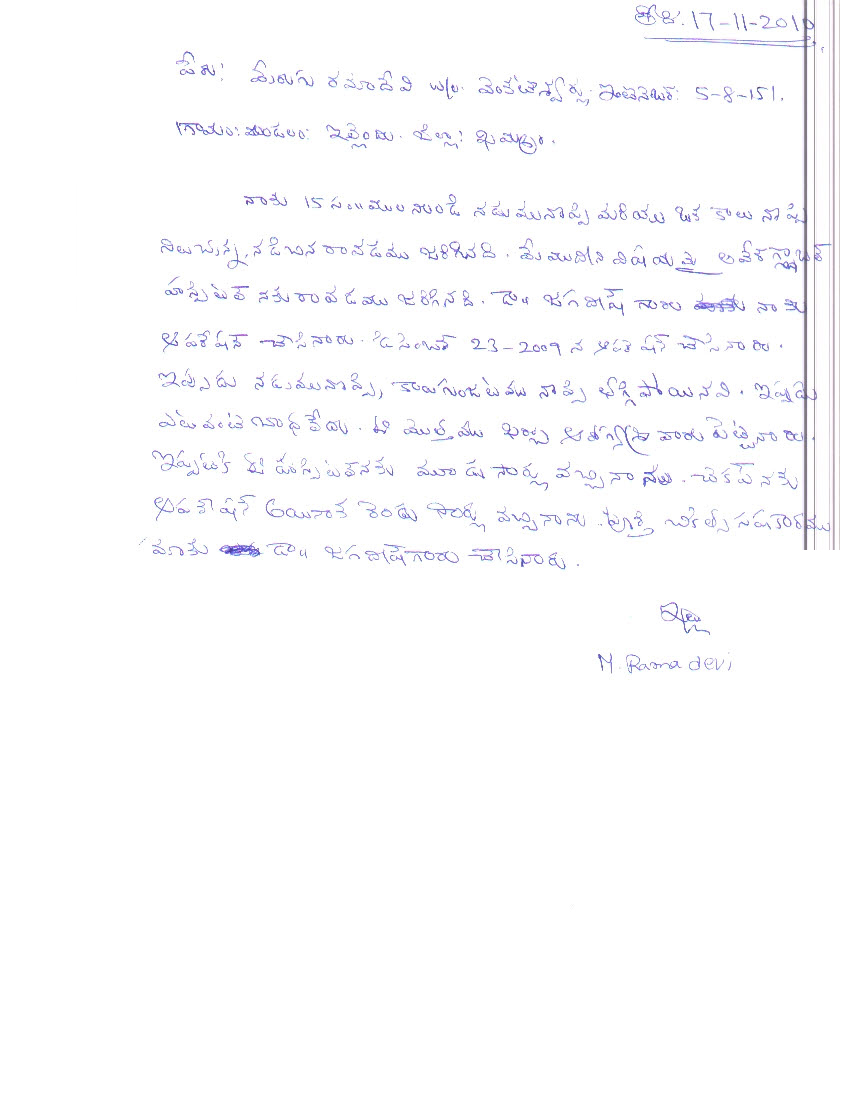 తేది. 17-11-2010
పేరు: మేరుగు రమాదేవి W/o. వెంకటేశ్వర్లు, ఇంటినెంబర్: 5-8-151.
గ్రామం: మండలం: ఇల్లెందు. జిల్లా: ఖమ్మం.
నాకు 15 సం॥ముల నుండి నడుమునొప్పి మరియు ఒక కాలు నొప్పి
నిలుచున్న, నడిచిన రావడము జరిగినది. మేము దీని విషయమై అవేర్ గ్లోబల్
హాస్పిటల్ నకు రావడము జరిగినది. డా॥ జగదీష్ గారు నాకు
ఆపరేషన్ చేసినారు. డిసెంబర్ 23-2009 న ఆపరేషన్ చేసినారు.
ఇప్పుడు నడుమునొప్పి, కాలుగుంజుటము నొప్పి తగ్గిపోయినవి. ఇప్పుడు
ఎటువంటి బాధలేదు. ఈ మొత్తము ఖర్చు ఆరోగ్యశ్రీ వారు పెట్టినారు.
ఇప్పటికి ఈ హాస్పిటల్‌నకు మూడు సార్లు వచ్చినాను. చెకప్ నకు
ఆపరేషన్ అయినాక రెండు సార్లు వచ్చినాను. పూర్తి చికిత్స సహకారము
మాకు డా॥ జగదీష్‌గారు చేసినారు.
ఇట్లు
M. Rama devi